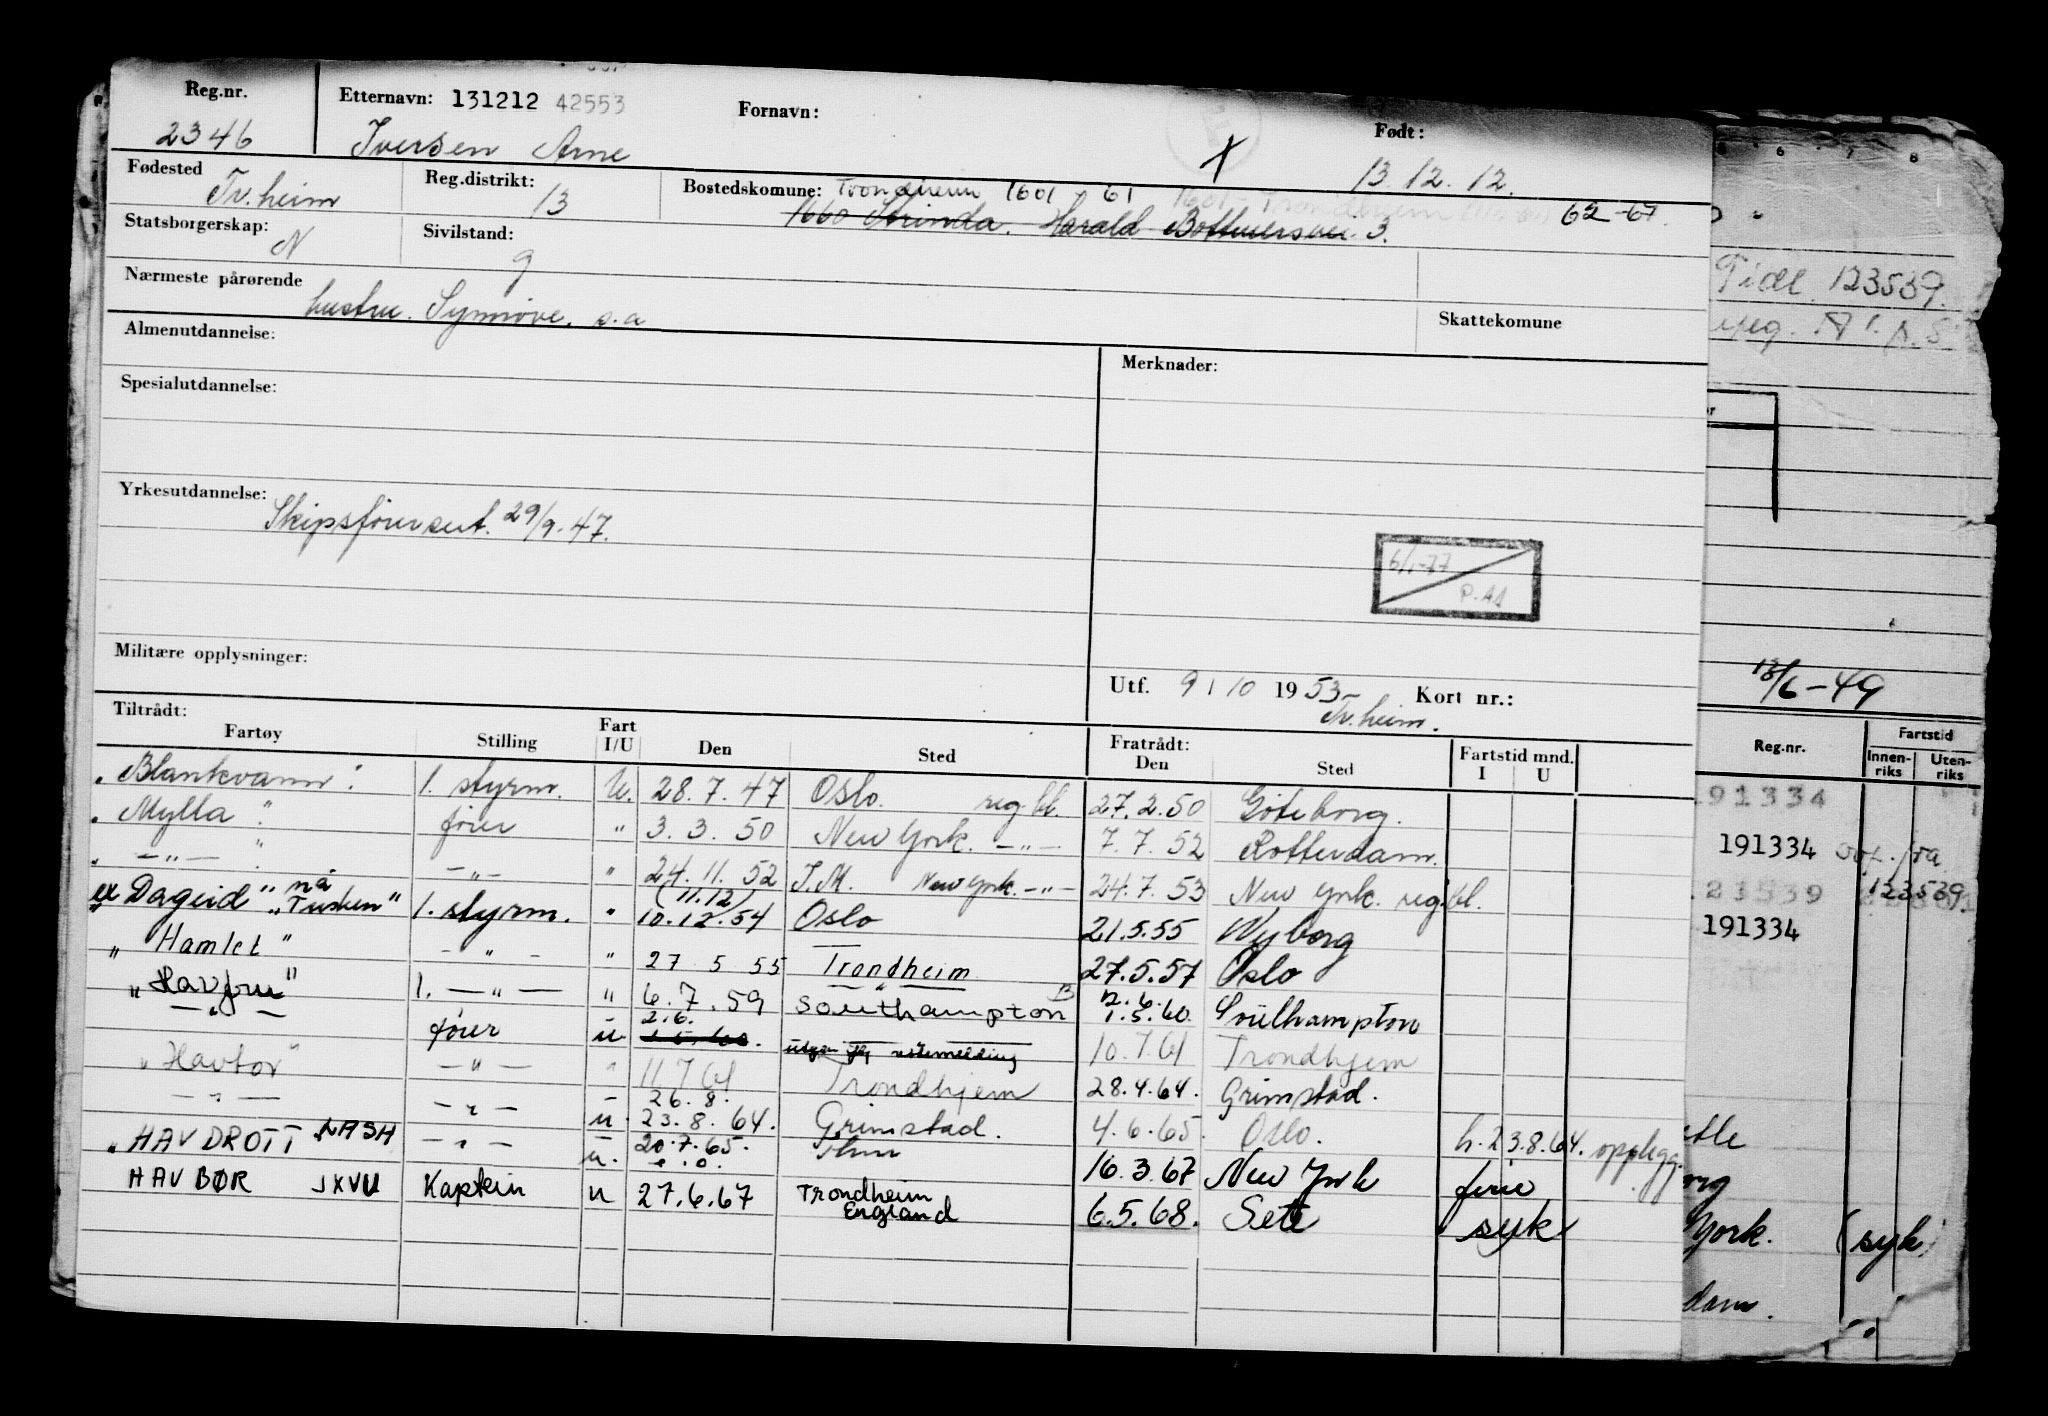 Reg.nr. Etternavn: 131212 42553 Fornavn: Født:
2346 Iversen Arne X 13.12.12.
Fødested Reg.distrikt: Bostedskomune: Trondheim 1601 - 61 1601 - Trondhjem 62-67.
Tr.heim 13 1660 Strinda. Harald 3.
Statsborgerskap: Sivilstand:
N g
Nærmeste pårørende
hustru. Synnøve. s.a Skattekomune
Almenutdannelse: Merknader:
Spesialutdannelse:
Yrkesutdannelse:
Skipsførersert. 29/9.47.
6/1-77
P.A1
Militære opplysninger:
Utf. 9 / 10 1953 Kort nr.:
Tr.heim.
Tiltrådt: Fratrådt:
Fartøy Stilling Fart I/U Den Sted Den Sted Fartstid mnd. I U
"Blankvann" 1. styrm. U. 28.7.47 Oslo. reg.bl. 27.2.50 Göteborg.
"Mylla" fører " 3.3.50 New York. -"- 7.7.52 Rotterdam.
" -"- " -"- " 24.11.52 New York. -"- 24.7.53 New York. reg.bl.
ex "Dageid" nå "Tusken" 1. styrm. " (11.12) 10.12.54 Oslo 21.5.55 Wyborg
"Hamlet" -"- " 27 5 55 Trondheim 27.5.57 Oslo
"Havfru" 1. -"- " 6.7.59 Southampton 1.5.60 Southampton
-"- fører u 2.6. 10.7.61 Trondhjem
"Havtor" -"- " 11.7.61 Trondhjem 28.4.64. Grimstad.
-"- -"- u. 26.8. 23.8.64. Grimstad. 4.6.65. Oslo. h. 23.8.64. opplegg.
"HAVDROTT LASH -"- u. 20.7.65. 16.3.67 New York ferie
HAVBØR JXVU Kaptein u 27.6.67 Trondheim England 6.5.68. Sete syk
6 7 8
Tidl. 123539.
18/6-49
Reg.nr. Fartstid
Innen-riks Uten-riks
191334
191334
123539
191334
York. (syk)
dam.